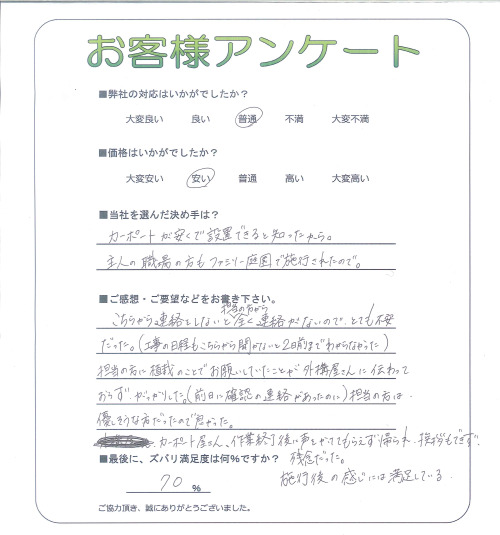 お客様アンケート
■弊社の対応はいかがでしたか？
大変良い 良い 普通 不満 大変不満
■価格はいかがでしたか？
大変安い 安い 普通 高い 大変高い
■当社を選んだ決め手は？
カーポートが安くで設置できると知ったから。
主人の職場の方もファミリー庭園で施行されたので。
■ご感想・ご要望などをお書き下さい。
担当の方から
こちらから連絡をしないと全く連絡がないので、とても不安
だった。(工事の日程もこちらから聞かないと2日前までわからなかった)
担当の方に植栽のことでお願いしていたことが外構屋さんに伝わって
おらず、がっかりした。(前日に確認の連絡があったのに)担当の方は、
優しそうな方だったので良かった。
カーポート屋さん、作業終了後い声をかけてもらえず帰られ、挨拶もできず、
残念だった。
■最後に、ズバリ満足度は何％ですか？
70 ％
施行後の感じには満足している。
ご協力頂き、誠にありがとうございました。